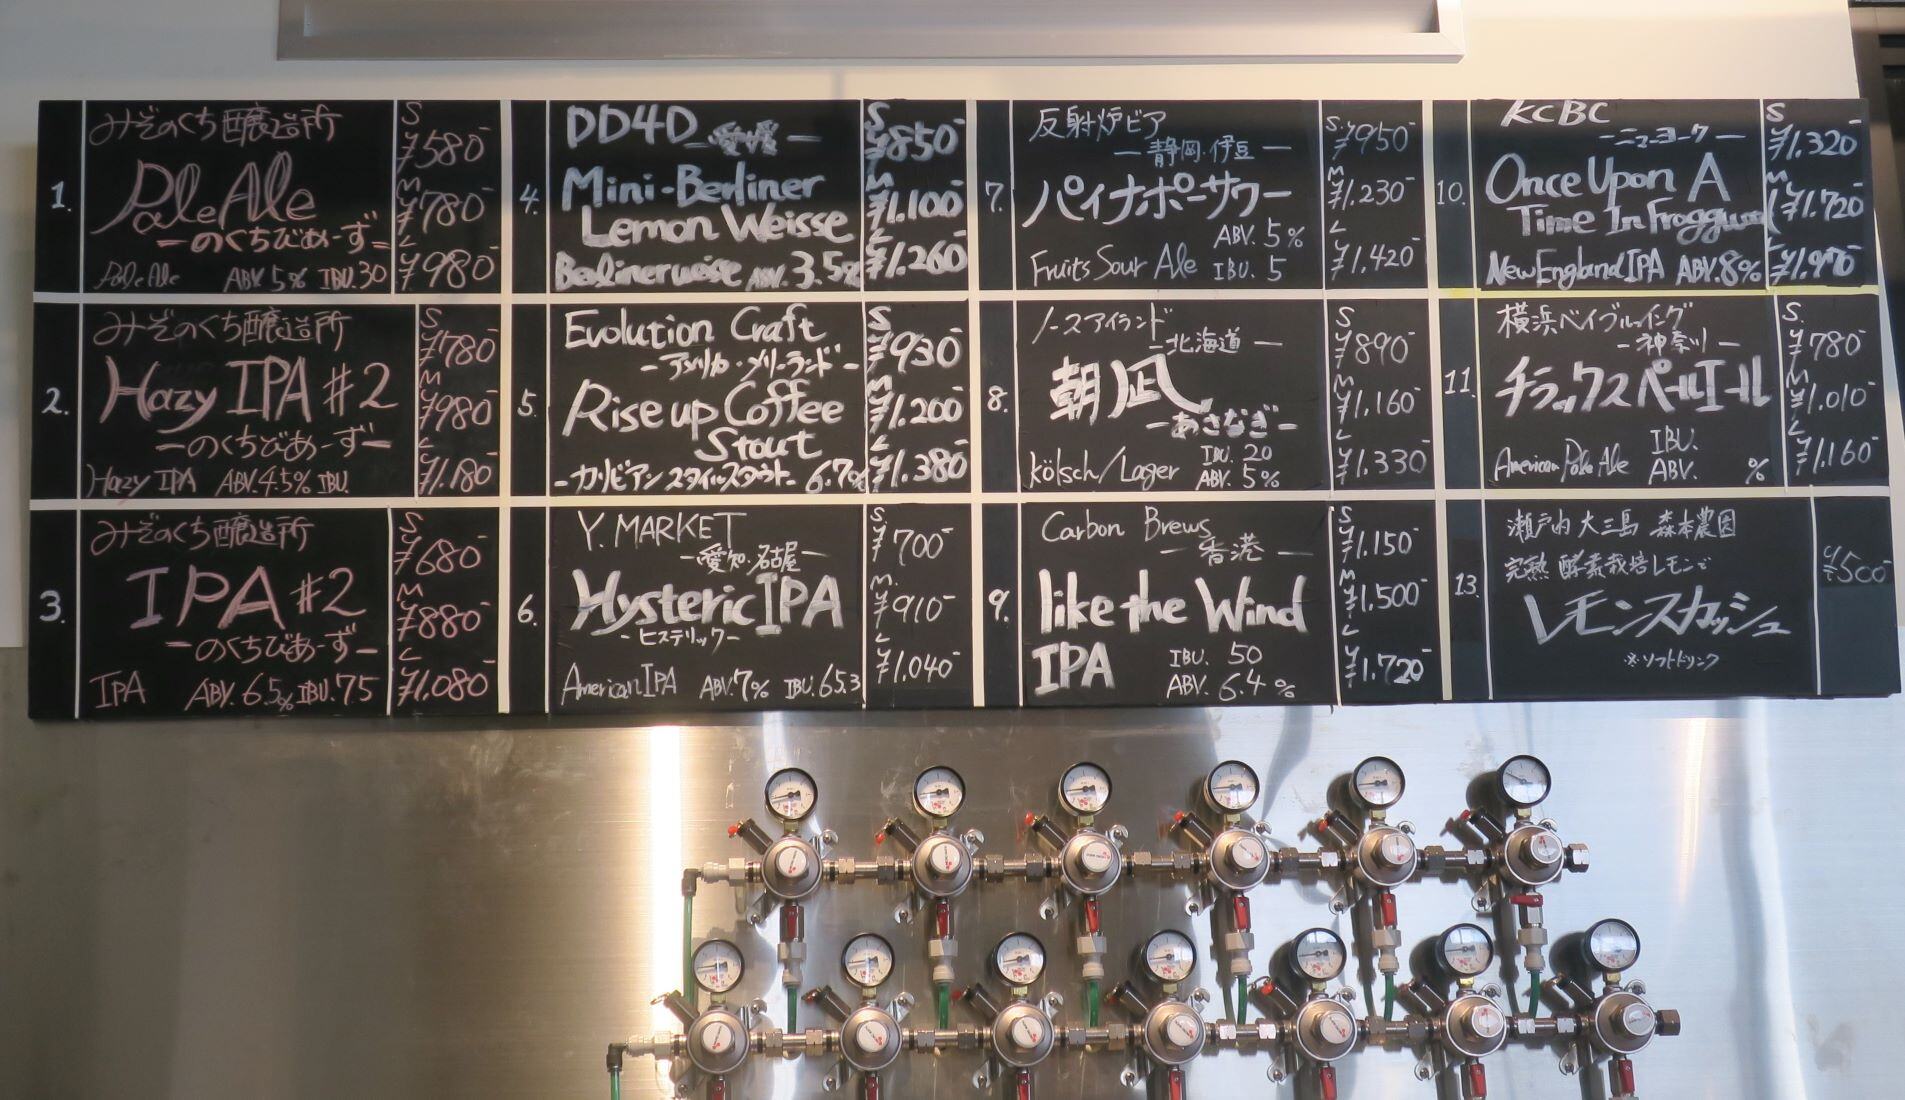 1.
みぞのくち醸造所
Pale Ale
ーのくちびあーずー
Pale Ale ABV. 5% IBU. 30
S ¥580-
M ¥780-
L ¥980-
2.
みぞのくち醸造所
Hazy IPA #2
ーのくちびあーずー
Hazy IPA ABV. 4.5% IBU.
S ¥780-
M ¥980-
L ¥1.180-
3.
みぞのくち醸造所
IPA #2
ーのくちびあーずー
IPA ABV. 6.5% IBU. 75
S ¥680-
M ¥880-
L ¥1.080-
4.
DD4D ー愛媛ー
Mini-Berliner
Lemon Weisse
Berlinerweise ABV. 3.5%
S ¥850-
M ¥1.100-
L ¥1.260-
5.
Evolution Craft
ーアメリカ・メリーランドー
Rise up Coffee
Stout
ーカリビアンスタイルスタウトー 6.7%
S ¥930-
M ¥1.200-
L ¥1.380-
6.
Y. MARKET
ー愛知・名古屋ー
Hysteric IPA
ーヒステリックー
American IPA ABV. 7% IBU. 65.3
S ¥700-
M. ¥910-
L ¥1.040-
7.
反射炉ビア
ー静岡・伊豆ー
パイナポーサワー
ABV. 5%
Fruits Sour Ale IBU. 5
S. ¥950-
M ¥1.230-
L ¥1.420-
8.
ノースアイランド
ー北海道ー
朝凪
ーあさなぎー
IBU. 20
Kölsch/Lager ABV. 5%
S ¥890-
M ¥1.160-
L ¥1.330-
9.
Carbon Brews
ー香港ー
like the Wind
IPA IBU. 50
ABV. 6.4%
S ¥1.150-
M ¥1.500-
L ¥1.720-
10.
KCBC
ーニューヨークー
Once Upon A
Time In
New England IPA ABV. 8%
S ¥1.320-
M ¥1.720-
L ¥1.970-
11.
横浜ベイブルーイング
ー神奈川ー
チラックスペールエール
IBU.
American Pale Ale ABV. %
S. ¥780-
M ¥1.010-
L ¥1.160-
13.
瀬戸内 大三島 森本農園
完熟 酵素栽培レモンで
レモンスカッシュ
※ソフトドリンク
¥500-